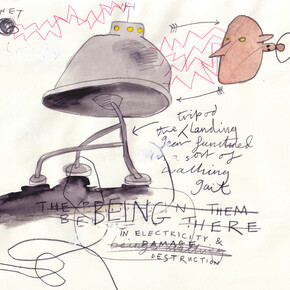 NET
tripod
the landing
gear functioned
a sort of
walking
gait
THE BEING IN THEM
BE THERE
IN ELECTRICITY &
DAMAGE
DESTRUCTION